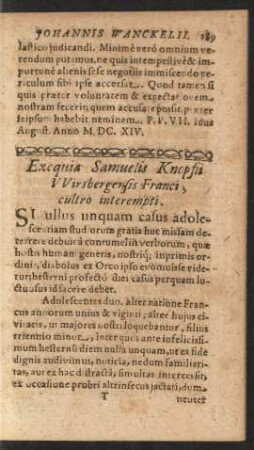 JOHANNIS WANCKELII. 189
lastico judicandi. Minimè verò omnium ve-
rendum putimus, ne quis intempestivè & im-
portunè alienis sese negotiis immiscendo pe-
riculum sibi ipse accersat. Quod tamen si
quis præter voluntatem & expectationem
nostram fecerit, quem accuset, posit, præter
seipsum habebit neminem. P. P. VII. idus
August. Anno M. DC. XIV.
Excquiæ Samuelis Knepsii
VVirsbergensis Franci,
cultro interempti.
SI ullus unquam casus adole-
scentiam studiorum gratia huc missam de-
terrere debuit à contumeliis verborum, quæ
hostis humani generis, nostrique inprimis or-
dinis, diabolus ex Orco ipso evomuisse vide-
tur, hesterni profectò diei casus perquam lu-
ctuosus id facere debet.
Adolescentes duo, alter natione Fran-
cus annorum unius & viginti, alter hujus ci-
vitatis, ut majores nostri loquebantur, filius
triennio minor, inter quos ante infelicissi-
mum hesternū diem nulla unquam, ut ex fide
dignis audivimus, noticia, nedum familiari-
tas, aut ex hac distracta, simultas intercessit,
ex occasione probri altrinsecus jactati, dum
T neuter